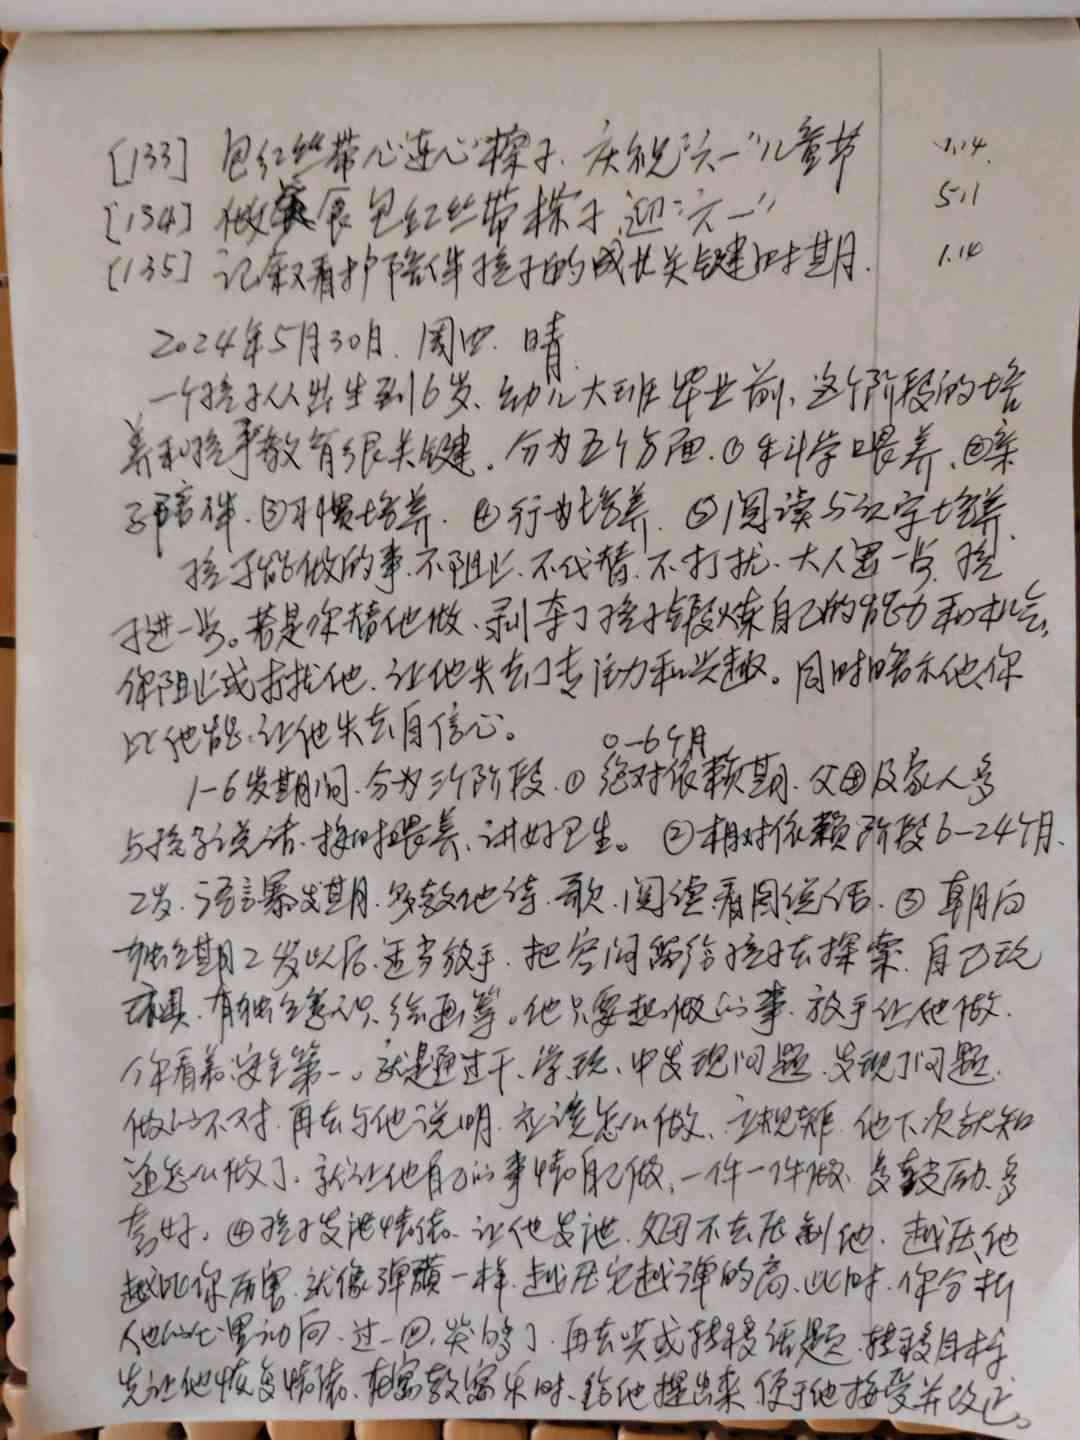 [133] 包红丝带心连心粽子、庆祝"六一"儿童节 1.14
[134] 做美食包红丝带粽子迎"六一" 5.11
[135] 记叙看护陪伴孩子的成长关键时期. 1.14
2024年5月30日. 周四. 晴
一个孩子从出生到6岁、幼儿大班毕业前、这个阶段的培
养和教育很关键。分为五个方面.①科学喂养、②亲
子陪伴.③习惯培养.④行为培养.⑤阅读与识字培养.
孩子能做的事.不阻止.不代替.不打扰.大人退一步.孩
子进一步。若是你替他做、剥夺了孩子锻炼自己的能力和机会,
你阻止或打扰他、让他失去了专注力和兴趣。同时暗示他,你
比他能、让他失去自信心。
0-6个月
1-6岁期间.分为三个阶段.①绝对依赖期.父母及家人多
与孩子说话.按时喂养、讲好卫生。②相对依赖阶段6-24个月.
2岁.语言暴发期.多教他诗、歌、阅读.看图说话.③朝向
独立期2岁以后.适当放手.把空间留给孩子去探索.自己玩
玩具.有独立意识.绘画等。他只要想做的事.放手让他做.
你看着.安全第一。就是通过干、学、玩、中发现问题.发现了问题.
做的不对.再去与他说明.应该怎么做、立规矩.他下次就知
道怎么做了.就让他自己的事情自己做、一件一件做.多鼓励.多
夸好.④孩子发泄情绪.让他发泄.父母不去压制他.越压他
越比你厉害.就像弹簧一样.越压它越弹的高.此时.你分析
他的心里动向.过一回.哭的够了.再去哄或转移话题.转移目标
先让他恢复情绪.在寓教寓乐时.给他提出来.便于他接受并改正。